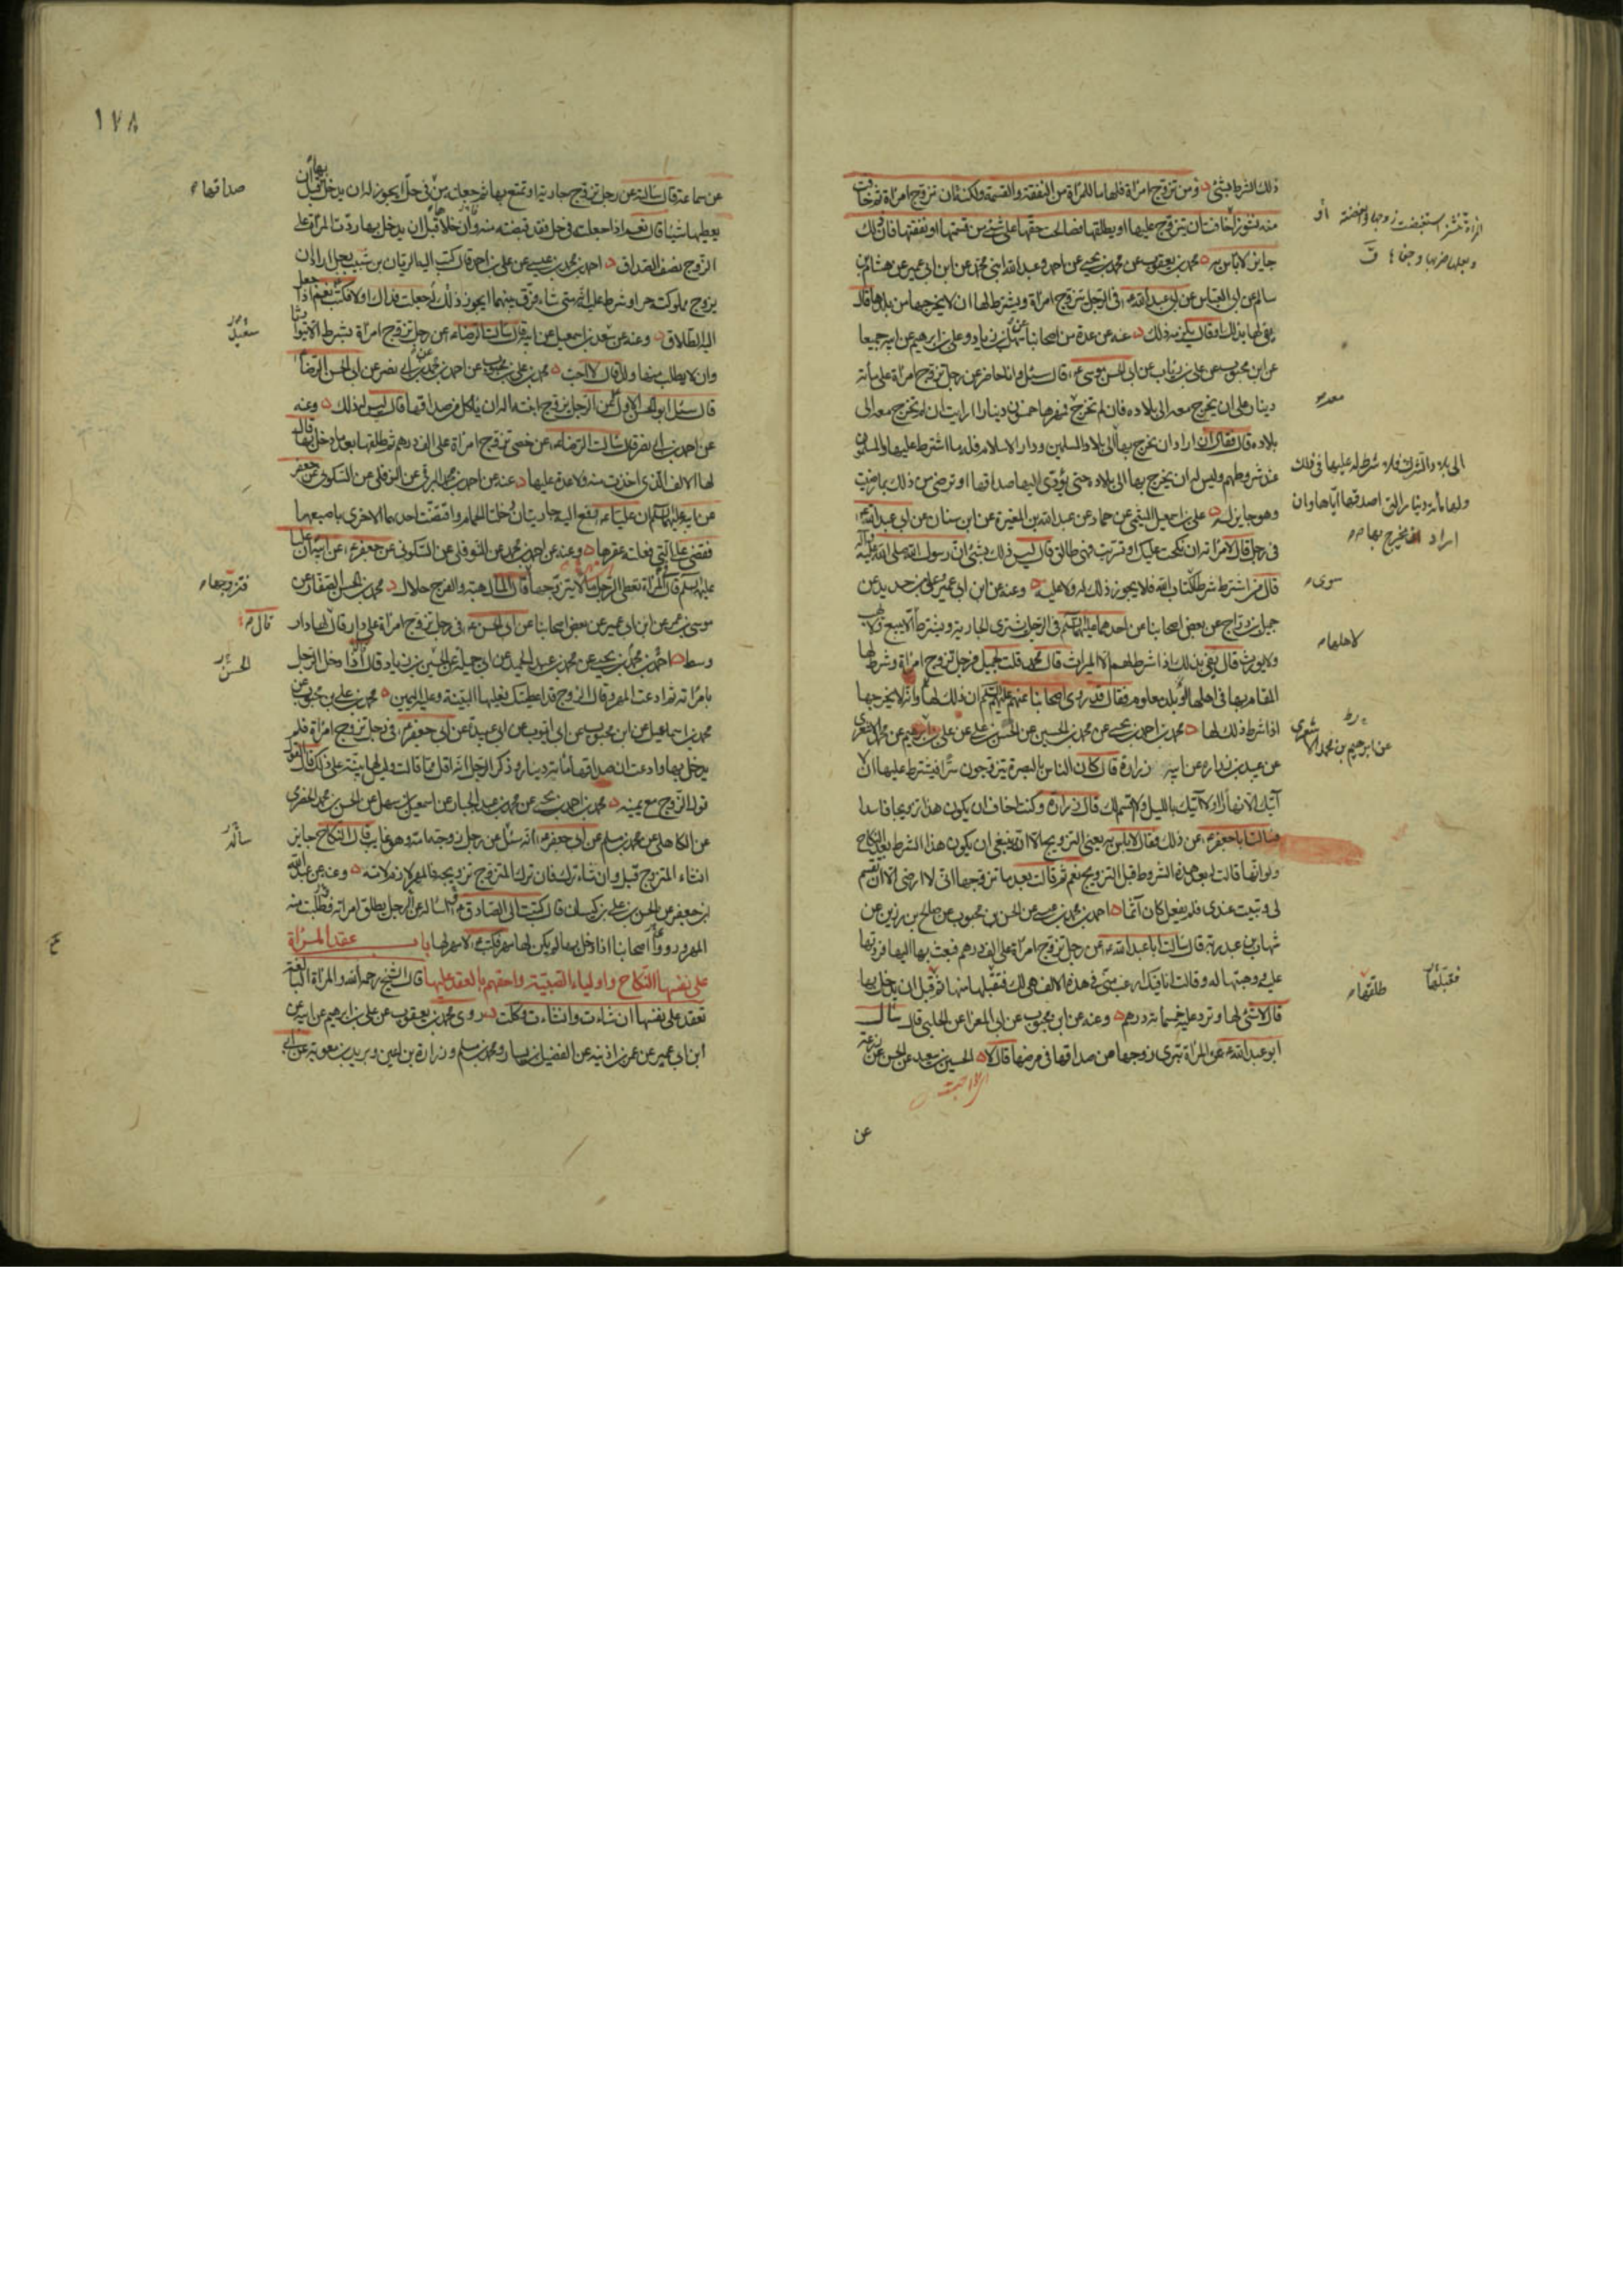 ذلك الشرط بشئ ومن تزوج امراة فلها ما للمراة من النفقة والقسمة ولكنه ان تزوج امراة فخافت
منه نشوزا خافت ان يتزوج عليها او يطلقها فصالحت حقها على شئ من قسمتها او نفقتها فان ذلك
جايز لا باس به محمد بن يعقوب عن محمد بن يحيى عن احمد وعبد الله ابنى محمد عن ابن ابى عمير عن هشام بن
سالم عن ابى العباس عن ابى عبد الله ع فى الرجل يتزوج امراة ويشترط لها ان لا يخرجها من بلدها قال
يفى لها بذلك او قال يلزمه ذلك عنه عن عدة من اصحابنا عن سهل بن زياد وعلى بن ابرهيم عن ابيه جميعا
عن ابن محبوب عن على بن رئاب عن ابى الحسن موسى ع قال سئل وانا حاضر عن رجل تزوج امراة على مأة
دينار على ان تخرج معه الى بلاده فان لم تخرج فمهرها خمسون دينارا ارايت ان لم تخرج معه الى
بلاده قال فقال ان اراد ان يخرج بها الى بلاد المسلمين ودار الاسلام فله ما اشترط عليها والمسلمون
عند شروطهم وليس له ان يخرج بها الى بلاده حتى يؤدى اليها صداقها او ترضى من ذلك بما رضيت
وهو جايز له على بن اسمعيل الميثمى عن حماد عن عبد الله بن المغيرة عن ابن سنان عن ابى عبد الله ع
فى رجل قال لامرأته ان نكحت عليك او تسريت فهى طالق قال ليس ذلك بشئ ان رسول الله صلى الله عليه وآله
قال من اشترط شرطا كتاب الله فلا يجوز ذلك له ولا عليه وعنه عن ابن ابى عمير وعلى بن حديد عن
جميل بن دراج عن بعض اصحابنا عن احدهما عليهما السلم فى الرجل يشترى الجارية ويشترط ألا يبيع ولا يهب
ولا يورث قال يفى بذلك اذا شرط لهم الا الميراث قال محمد قلت لجميل فرجل تزوج امراة وشرط لها
المقام بها فى اهلها او بلد معلوم فقال قد روى اصحابنا عنهم عليهم السلم ان ذلك لها وانه لا يخرجها
اذا شرط ذلك لها محمد بن احمد بن يحيى عن محمد بن الحسين عن الحسن بن على عن على بن ابرهيم عن محمد الاشعرى
عن عبيد بن زرارة عن ابيه زرارة قال كان الناس بالبصرة يتزوجون سرا فيشترط عليها ان لا
آتيك الا نهارا ولا آتيك بالليل ولا اقسم لك قال زرارة وكنت اخاف ان يكون هذا تزويجا فاسدا
فسالت ابا جعفر ع عن ذلك فقال لا باس به يعنى التزويج الا انه ينبغى ان يكون هذا الشرط بعد النكاح
ولو انها قالت له بعد هذه الشروط قبل التزويج نعم ثم قالت بعد ما تزوجها انى لا ارضى الا ان تقسم
لى وتبيت عندى فلم يفعل كان آثما احمد بن محمد بن عيسى عن الحسن بن محبوب عن صالح بن رزين عن
شهاب بن عبد ربه قال سالت ابا عبد الله ع عن رجل تزوج امراة على الف درهم فبعث بها اليها فردتها
عليه ووهبتها له وقالت انا فيك ارغب منى فى هذه الالف هى لك فتقبلها منها ثم قبل ان يدخل بها
قال لا شئ لها وترد عليه خمسمائة درهم وعنه عن ابن محبوب عن ابى المغرا عن الحلبى قال سأل
ابو عبد الله ع عن المراة تبرى زوجها من صداقها فى مرضها قال لا الحسين بن سعيد عن الحسن عن زرعة
عن
او
الى بلاد الشرك فلا شرط له عليها فى ذلك
ولها مأة دينار التى اصدقها اياها وان
اراد ان يخرج بها
سوى
لاهلها
عن ابرهيم بن محمد الاشعرى
طلقها
فتقبلها
١٧٨
عن سماعة قال سالته عن رجل تزوج جارية او تمتع بها ثم جعلته من فى حل ايجوز له ان يدخل بها قبل ان
يعطيها شيئا قال نعم اذا جعلته فى حل فقد قبضته منه وان خلاها قبل ان يدخل بها ردت المراة على
الزوج نصف الصداق احمد بن محمد بن عيسى عن على بن احمد قال كتب اليه الريان بن شبيب رجل اراد ان
يزوج مملوكته حرا وشرط عليه انه متى شاء فرق بينهما ايجوز ذلك له جعلت فداك او لا فكتب نعم اذا جعل
اليه الطلاق وعنه عن سعد بن اسمعيل عن ابيه قال سالت الرضا ع عن رجل تزوج امراة بشرط الا يتوارثا
وان لا يطلب منها ولدا قال لا احب محمد بن على بن محبوب عن احمد بن محمد بن ابى نصر عن ابى الحسن الرضا ع
قال سئل ابو الحسن الاول عن الرجل يزوج ابنته اله ان ياكل من صداقها قال ليس له ذلك وعنه
عن احمد بن ابى نصر قال سالت الرضا ع عن خصى تزوج امراة على الف درهم ثم طلقها بعد ما دخل بها قال
لها الالف الذى اخذت منه ولا عدة عليها وعنه عن احمد بن محمد البرقى عن النوفلى عن السكونى عن جعفر
عن ابيه عليهما السلم ان عليا ع رفع اليه جاريتان دخلتا الحمام واقتضت احدهما الاخرى باصبعها
فقضى على التى فعلت عقرها وعنه عن احمد بن محمد عن النوفلى عن السكونى عن جعفر ع عن ابيه ان عليا
عليه السلم قال المراة تعطى الرجل مالا يتزوجها قال المال هبة والفرج حلال محمد بن الحسن الصفار عن
موسى بن عمر عن ابن ابى عمير عن بعض اصحابنا عن ابى الحسن ع فى رجل تزوج امراة على دار قال لها دار
وسط احمد بن محمد بن يحيى عن محمد بن عبد الحميد عن ابى جميلة عن الحسين بن زياد قال اذا دخل الرجل
بامراته ثم ادعت المهر وقال الزوج قد اعطيتك فعليها البينة وعليه اليمين محمد بن على بن محبوب عن
محمد بن اسماعيل عن ابن محبوب عن ابى ايوب عن ابى عبيدة عن ابى جعفر ع فى رجل تزوج امراة فلم
يدخل بها وادعت ان صداقها مائة دينار وذكر الرجل انه اقل مما قالت وليس لها بينة على ذلك قال القول
قول الزوج مع يمينه محمد بن احمد بن يحيى عن محمد بن عبد الجبار عن اسمعيل بن سهل عن الحسن بن محمد الحضرمى
عن الكاهلى عن محمد بن مسلم عن ابى جعفر ع انه سئل عن رجل زوجته امه وهو غايب قال النكاح جايز
ان شاء المتزوج قبل وان شاء ترك فان ترك المتزوج تزويجه فالمهر لازم لامه وعنه عن عبد الله
ابن جعفر عن الحسن بن على بن كيسان قال كتبت الى الصادق ع اساله عن الرجل يطلق امراته فطلبت منه
المهر وروى اصحابنا اذا دخل بها لم يكن لها مهر فكتب ع لا مهر لها باب عقد المراة
على نفسها النكاح واولياء الصبية واحقهم بالعقد عليها قال الشيخ رحمه الله والمراة البالغة
تعقد على نفسها ان شاءت وان شاءت وكلت روى محمد بن يعقوب عن على بن ابرهيم عن ابيه عن
ابن ابى عمير عن عمر بن اذينه عن الفضيل بن يسار ومحمد بن مسلم وزرارة بن اعين وبريد بن معوية عن ابى
صداقها
سعيد
فتزوجها
قال
الحسن
سأله